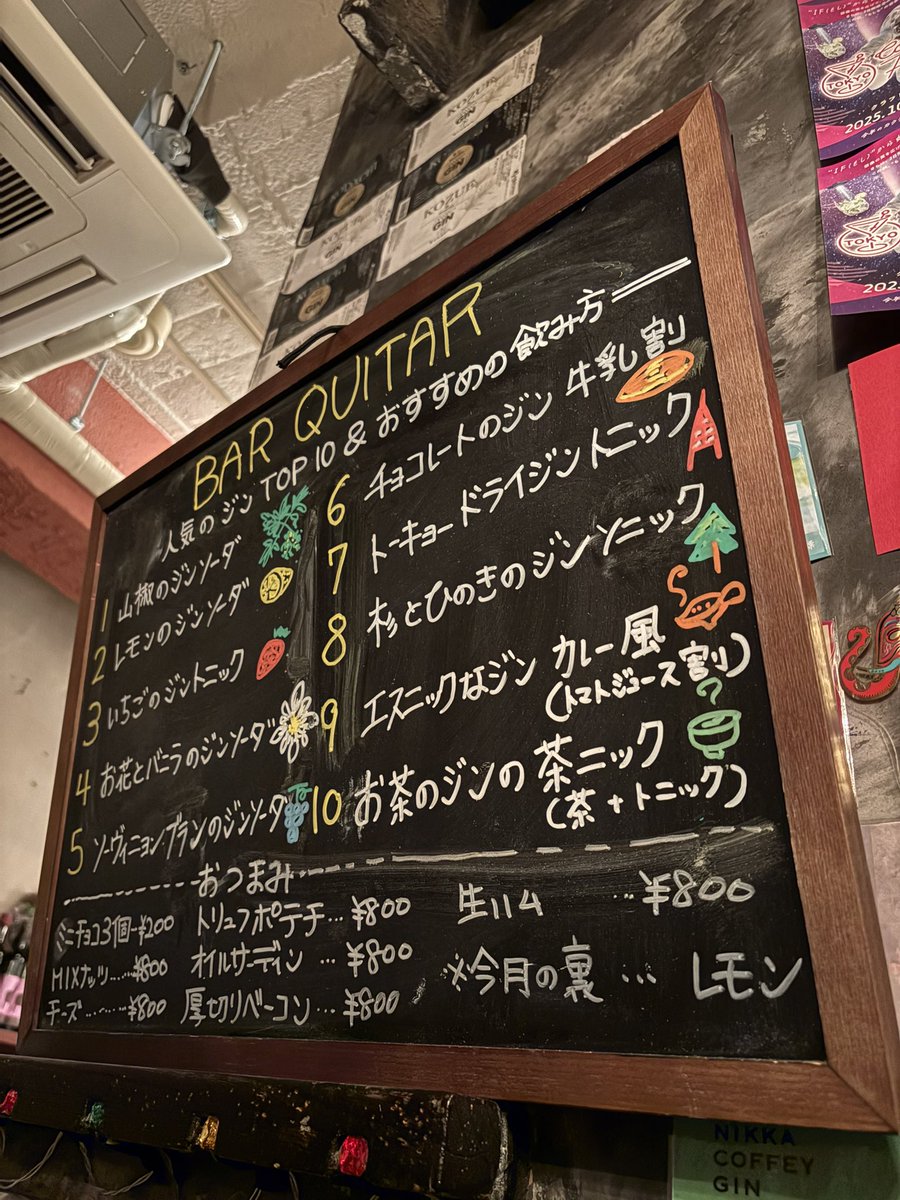 BAR QUITAR
人気のジン TOP 10 & おすすめの飲み方
1 山椒のジンソーダ
2 レモンのジンソーダ
3 いちごのジントニック
4 お花とバニラのジンソーダ
5 ソーヴィニョンブランのジンソーダ
6 チョコレートのジン 牛乳割
7 トーキョードライジントニック
8 杉とひのきのジンソニック
9 エスニックなジン カレー風
(トマトジュース割)
10 お茶のジンの茶ニック
(茶+トニック)
おつまみ
ミニチョコ3個…¥200
MIXナッツ……¥800
チーズ……¥800
トリュフポテチ…¥800
オイルサーディン…¥800
厚切りベーコン…¥800
生ハム …¥800
※今月の裏… レモン
KOZUE
GIN
KOZUE
GIN
GIN
TOKYO
2025.10
TOKYO
NIKKA
COFFEY
GIN